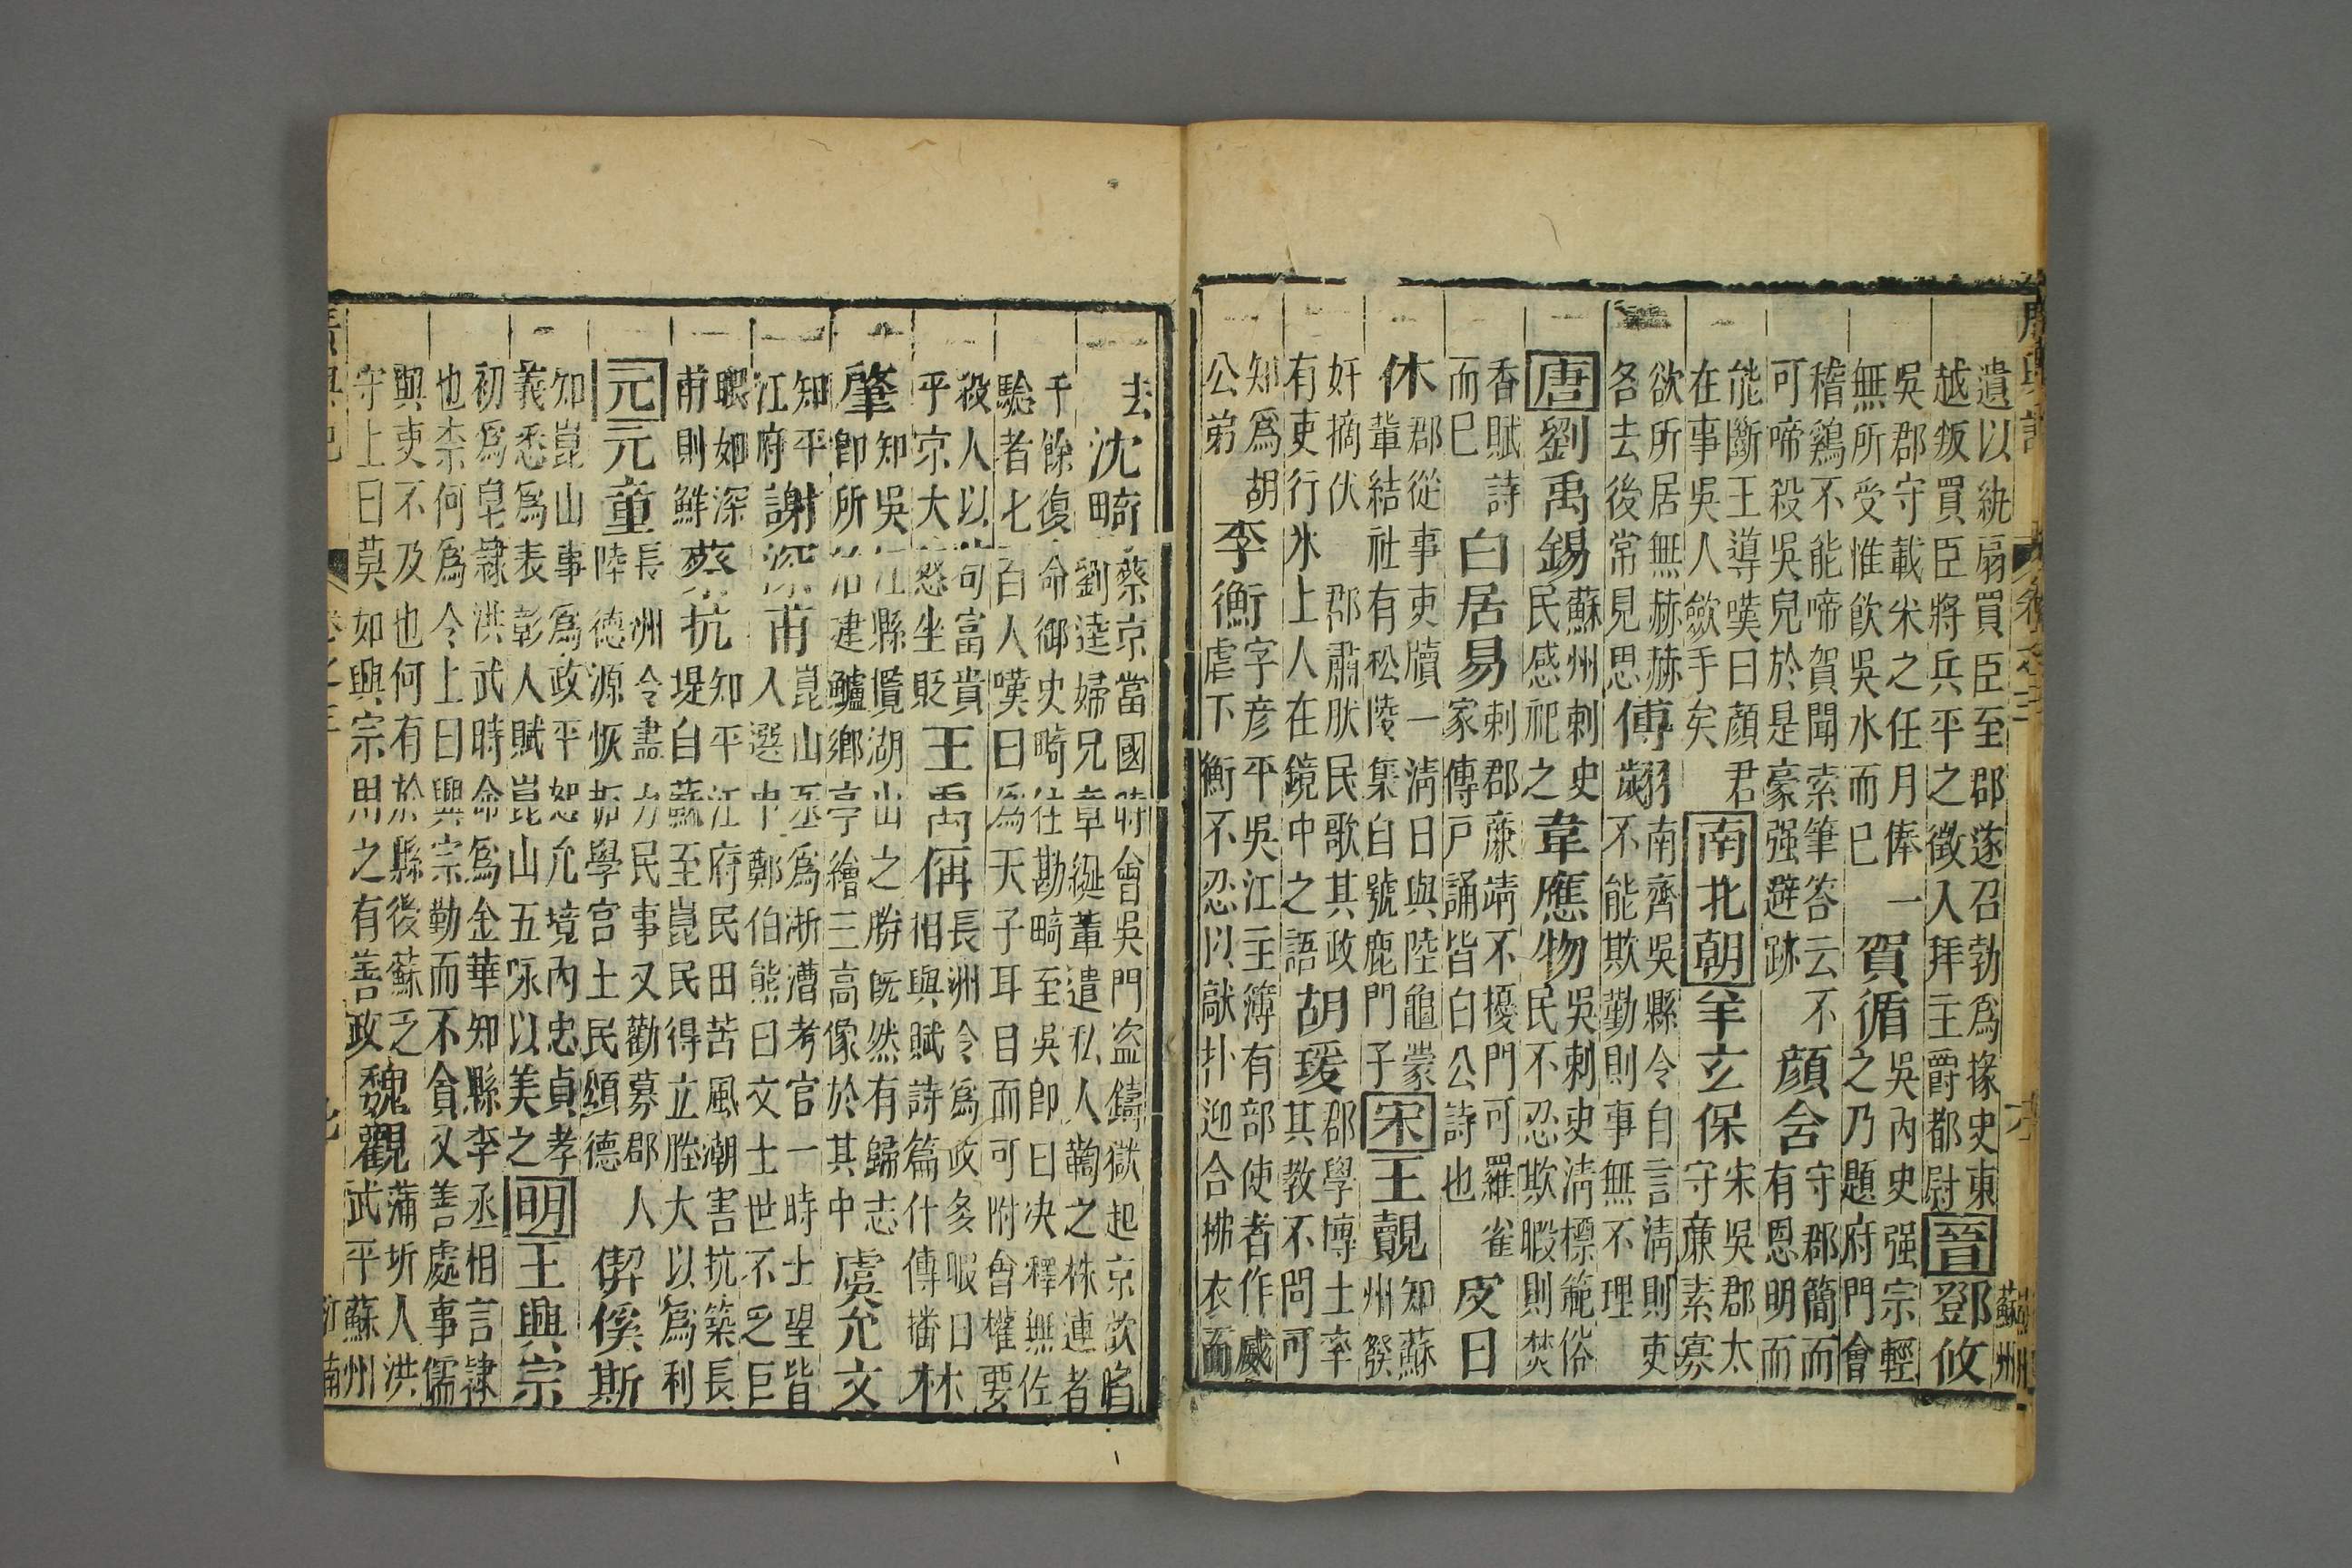 遺以紈扇買臣至郡遂召勃爲掾史東
越叛買臣將兵平之徵入拜主爵都尉晉鄧攸
吳郡守載米之任月俸一
無所受惟飲吳水而已賀循吳內史强宗輕
之乃題府門會
稽鷄不能啼賀聞索筆答云不
可啼殺吳兒於是豪强避跡顏含守郡簡而
有恩明而
能斷王導嘆曰顏君
在事吳人歛手矣南北朝羊玄保宋吳郡太
守廉素寡
欲所居無赫赫
各去後常見思傅翽南齊吳縣令自言淸則吏
不能欺勤則事無不理
唐劉禹錫蘇州刺史
民感祀之韋應物吳刺史淸標範俗
民不忍欺暇則焚
香賦詩
而已白居易刺郡廉靖不擾門可羅雀
家傳戶誦皆白公詩也皮日
休郡從事吏牘一淸日與陸龜蒙
輩結社有松陵集自號鹿門子宋王覿知蘇
州發
奸摘伏郡肅肰民歌其政
有吏行氷上人在鏡中之語胡瑗郡學博士率
其教不問可
知爲胡
公弟李衡字彦平吳江主簿有部使者作威
虐下衡不忍以敲扑迎合柫衣而
去沈畸蔡京當國時會吳門盜鑄獄起京欲陷
劉逵婦兄章綖輩遣私人鞫之株連者
千餘復命御史畸往勘畸至吳卽日决釋無佐
驗者七百人嘆曰爲天子耳目而可附會權要
殺人以苟富貴
乎京大怒坐貶王禹偁長洲令爲政多暇日
相與賦詩篇什傳播林
肇知吳江縣覽湖山之勝旣然有歸志
卽所治建鱸鄉亭繪三高像於其中虞允文
知平
江府謝深甫崑山丞爲浙漕考官一時士望皆
入選中鄭伯熊曰文士世不乏巨
眼如深
甫則鮮蔡抗知平江府民田苦風潮害抗築長
堤自蘇至崑民得立塍大以爲利
元元童長洲令盡力民事又勸募郡人
陸德源恢拓學宮士民頌德偰傒斯
知崑山事爲政平恕允境內忠貞孝
義悉爲表彰人賦崑山五咏以美之明王興宗
初爲皁隸洪武時命爲金華知縣李丞相言隷
也柰何爲令上曰興宗勤而不貪又善處事儒
與吏不及也何有於縣後蘇乏
守上曰莫如興宗用之有善政魏觀蒲圻人洪
武平蘇州